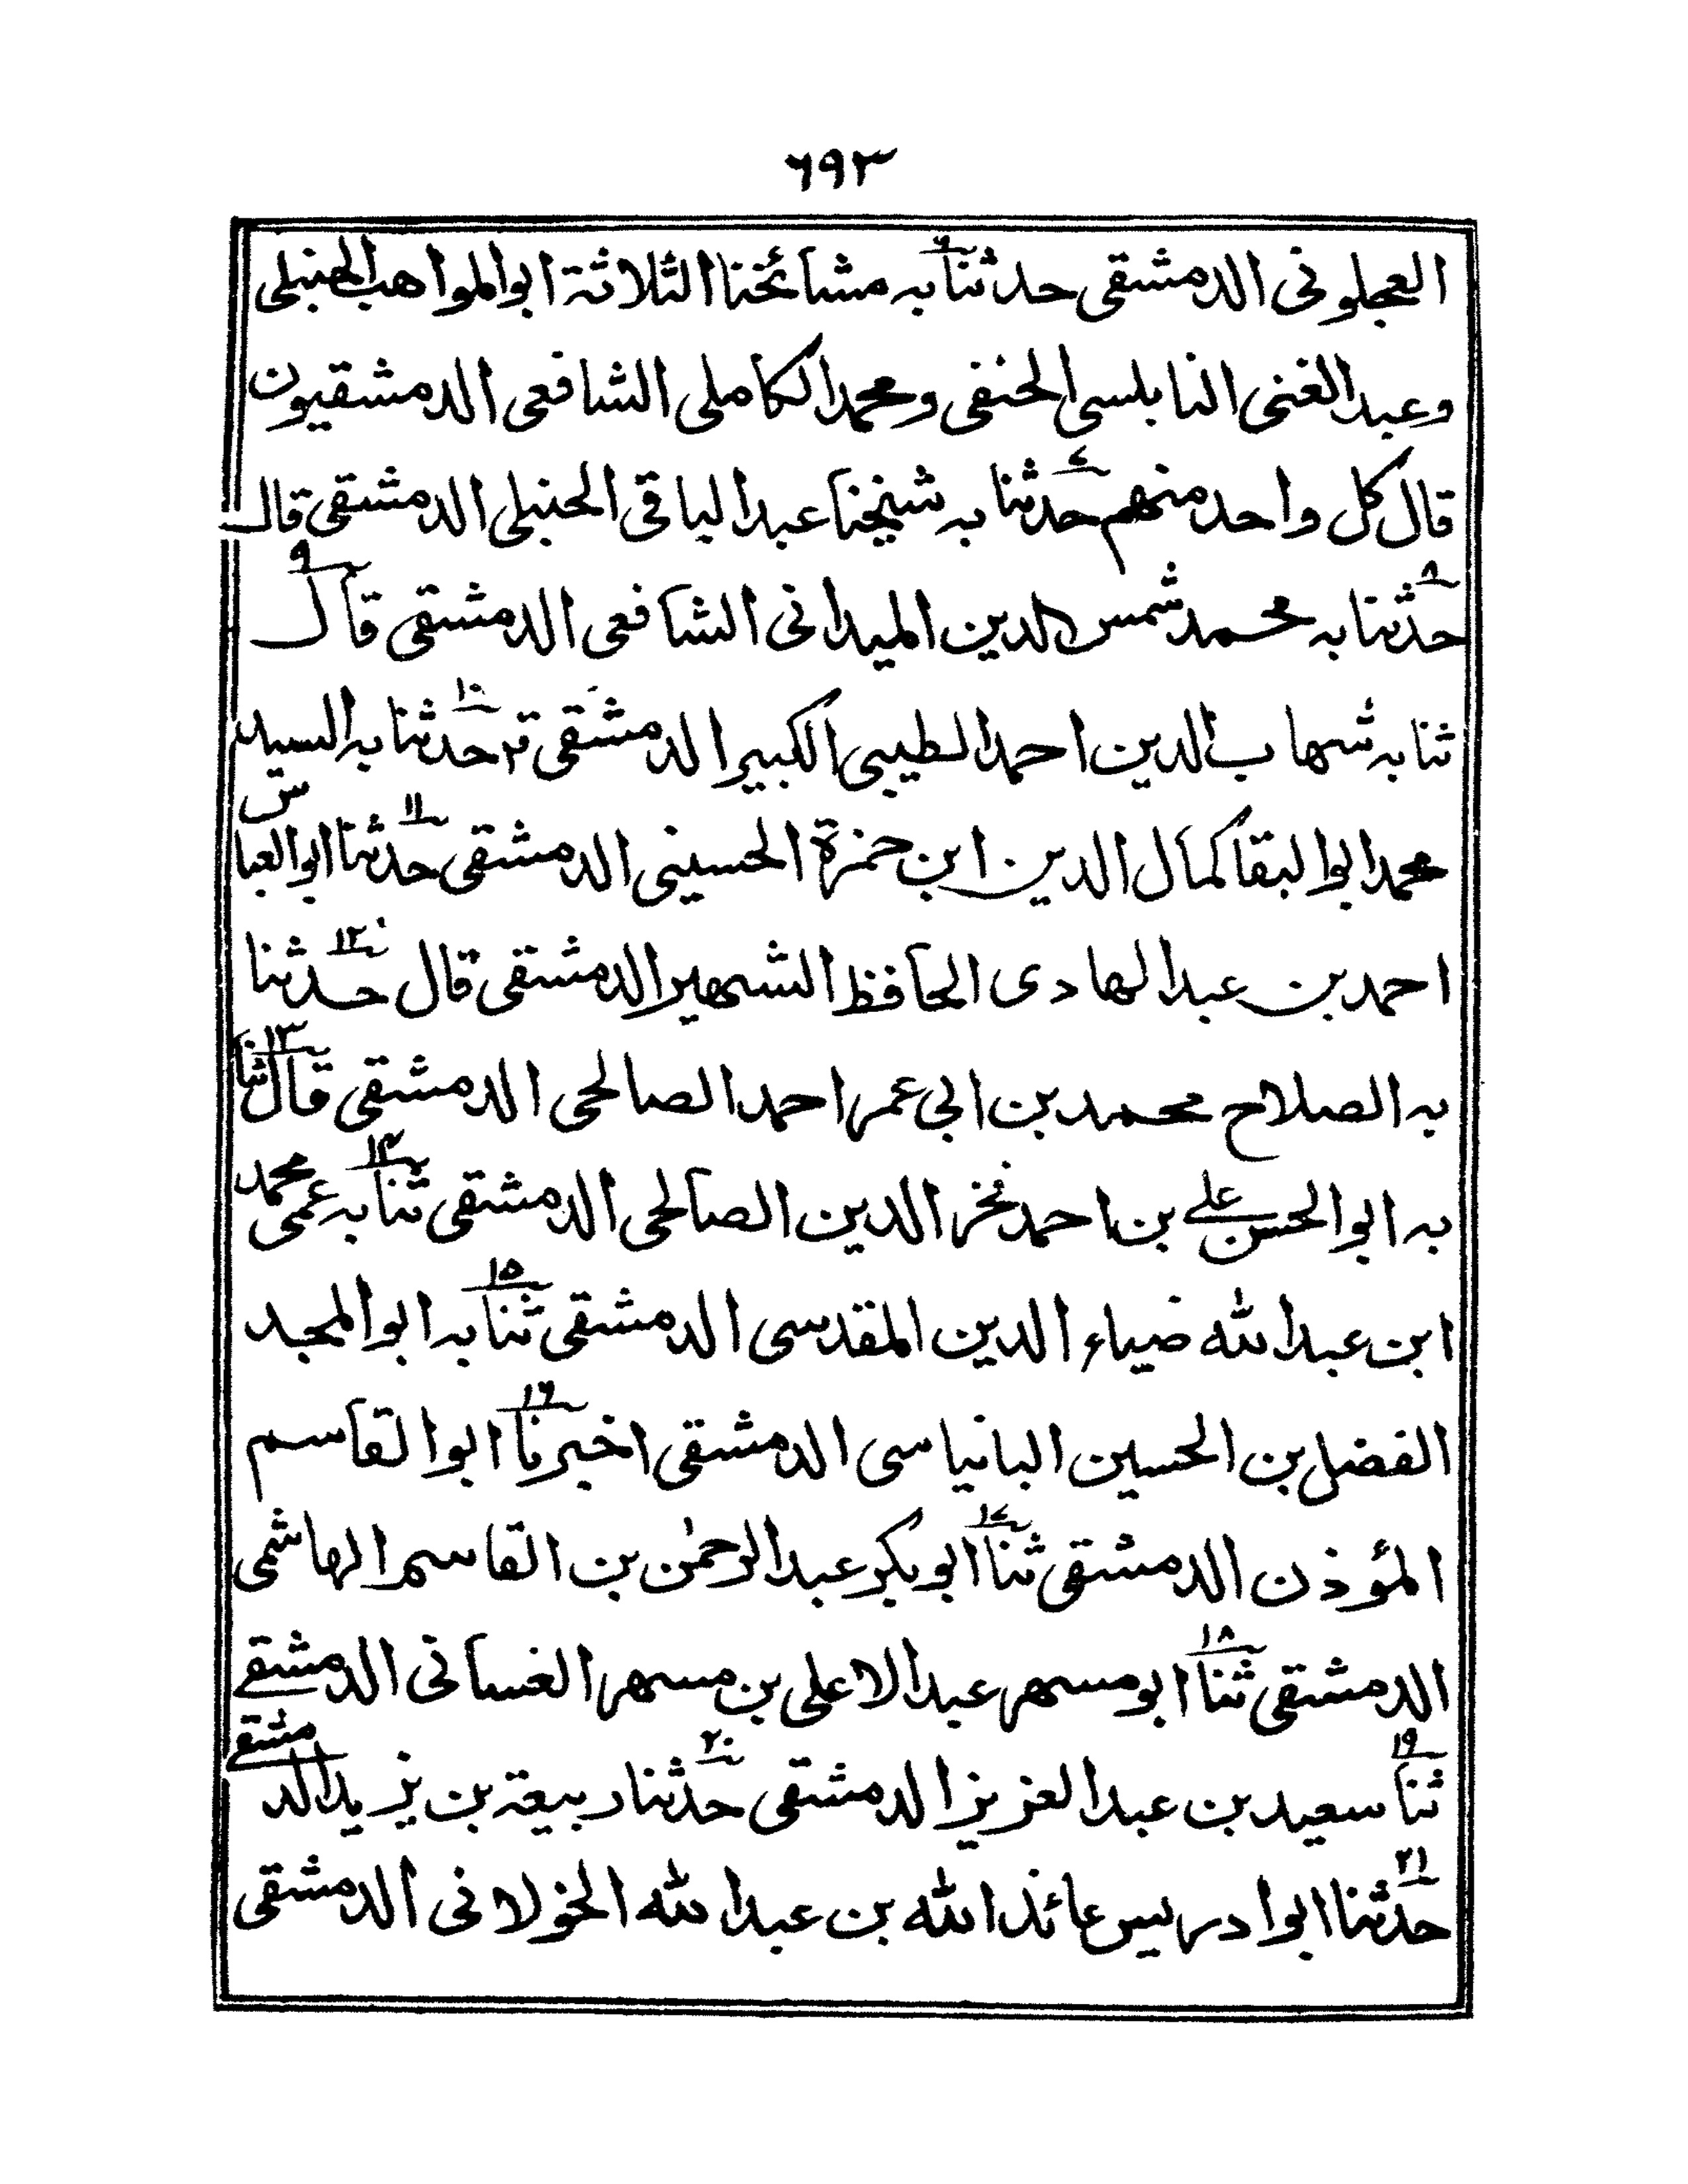 ٦٩٣
العجلونی الدمشقی حدثنا به مشائخنا الثلاثة ابو المواهب الحنبلی
وعبد الغنی النابلسی الحنفی ومحمد الکاملی الشافعی الدمشقیون
قال کل واحد منهم حدثنا به شیخنا عبد الباقی الحنبلی الدمشقی قال
حدثنا به محمد شمس الدین المیدانی الشافعی الدمشقی قال
ثنا به شهاب الدین احمد الطیبی الکبیر الدمشقی قال حدثنا به السید
محمد ابو البقا کمال الدین ابن حمزة الحسینی الدمشقی حدثنا ابو العباس
احمد بن عبد الهادی الحافظ الشهیر الدمشقی قال حدثنا
به الصلاح محمد بن ابی عمر احمد الصالحی الدمشقی قال ثنا
به ابو الحسن علی بن احمد فخر الدین الصالحی الدمشقی ثنا به عمی محمد
ابن عبد الله ضیاء الدین المقدسی الدمشقی ثنا به ابو المجد
الفضل بن الحسین البانیاسی الدمشقی اخبرنا ابو القاسم
المؤذن الدمشقی ثنا ابو بکر عبد الرحمٰن بن القاسم الهاشمی
الدمشقی ثنا ابو مسهر عبد الاعلی بن مسهر الغسانی الدمشقی
ثنا سعید بن عبد العزیز الدمشقی حدثنا ربیعة بن یزید الدمشقی
حدثنا ابو ادریس عائذ الله بن عبد الله الخولانی الدمشقی